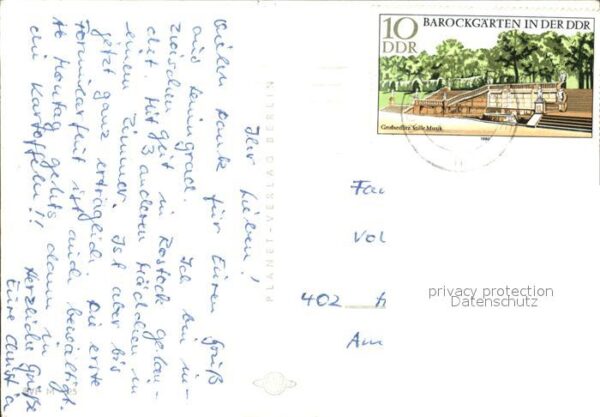 Ihr Lieben!
Vielen Dank für Euren Gruß
aus Leningrad. Ich bin in-
zwischen gut in Rostock gelan-
det. Mit 3 anderen Mädchen in
einem Zimmer. Ist aber bis
jetzt ganz erträglich. Die erste
Formularflut ist auch bewältigt.
Ab Montag gehts dann in
die Kartoffeln!!
Herzliche Grüße
Eure
PLANET-VERLAG BERLIN
10
DDR
BAROCKGÄRTEN IN DER DDR
Großsedlitz, Stille Musik
1980
Fam
Vol
402 H
Am
privacy protection
Datenschutz